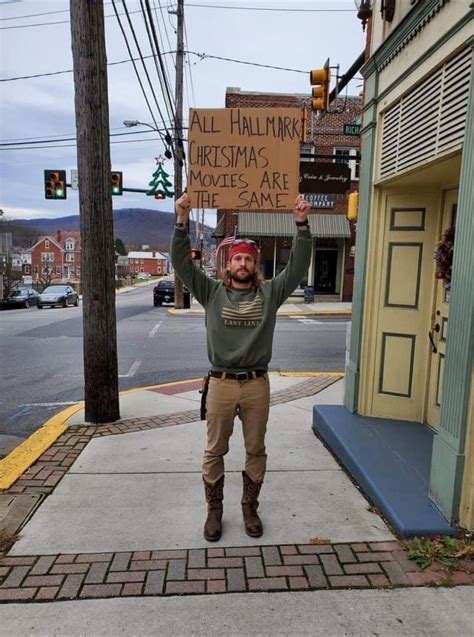 ALL HALLMARK
CHRISTMAS
MOVIES ARE
THE SAME
Coin & Jewelry
COFFEE
COMPANY
LAST LINE